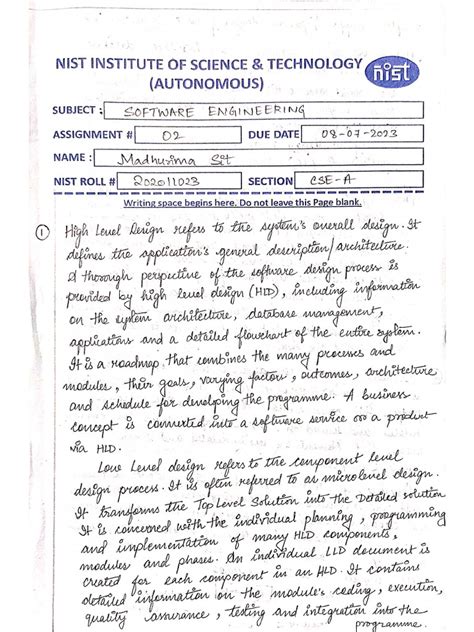 NIST INSTITUTE OF SCIENCE & TECHNOLOGY
(AUTONOMOUS)
nist
SUBJECT : SOFTWARE ENGINEERING
ASSIGNMENT # 02 DUE DATE 08-07-2023
NAME : Madhurima Sit
NIST ROLL # 202011023 SECTION CSE-A
Writing space begins here. Do not leave this Page blank.
1 High Level Design refers to the system's overall design. It
defines the application's general description/architecture.
A thorough perspective of the software design process is
provided by high level design (HLD), including information
on the system architecture, database management,
applications and a detailed flowchart of the entire system.
It is a roadmap that combines the many processes and
modules, their goals, varying factors, outcomes, architecture
and schedule for developing the programme. A business
concept is converted into a software service or a product
via HLD.
Low Level design refers to the component level
design process. It is often referred to as microlevel design.
It transforms the Top Level Solution into the Detailed solution
It is concerned with the individual planning, programming
and implementation of many HLD components,
modules and phases. An individual LLD document is
created for each component in an HLD. It contains
detailed information on the module's coding, execution,
quality assurance, testing and integration into the
programme.